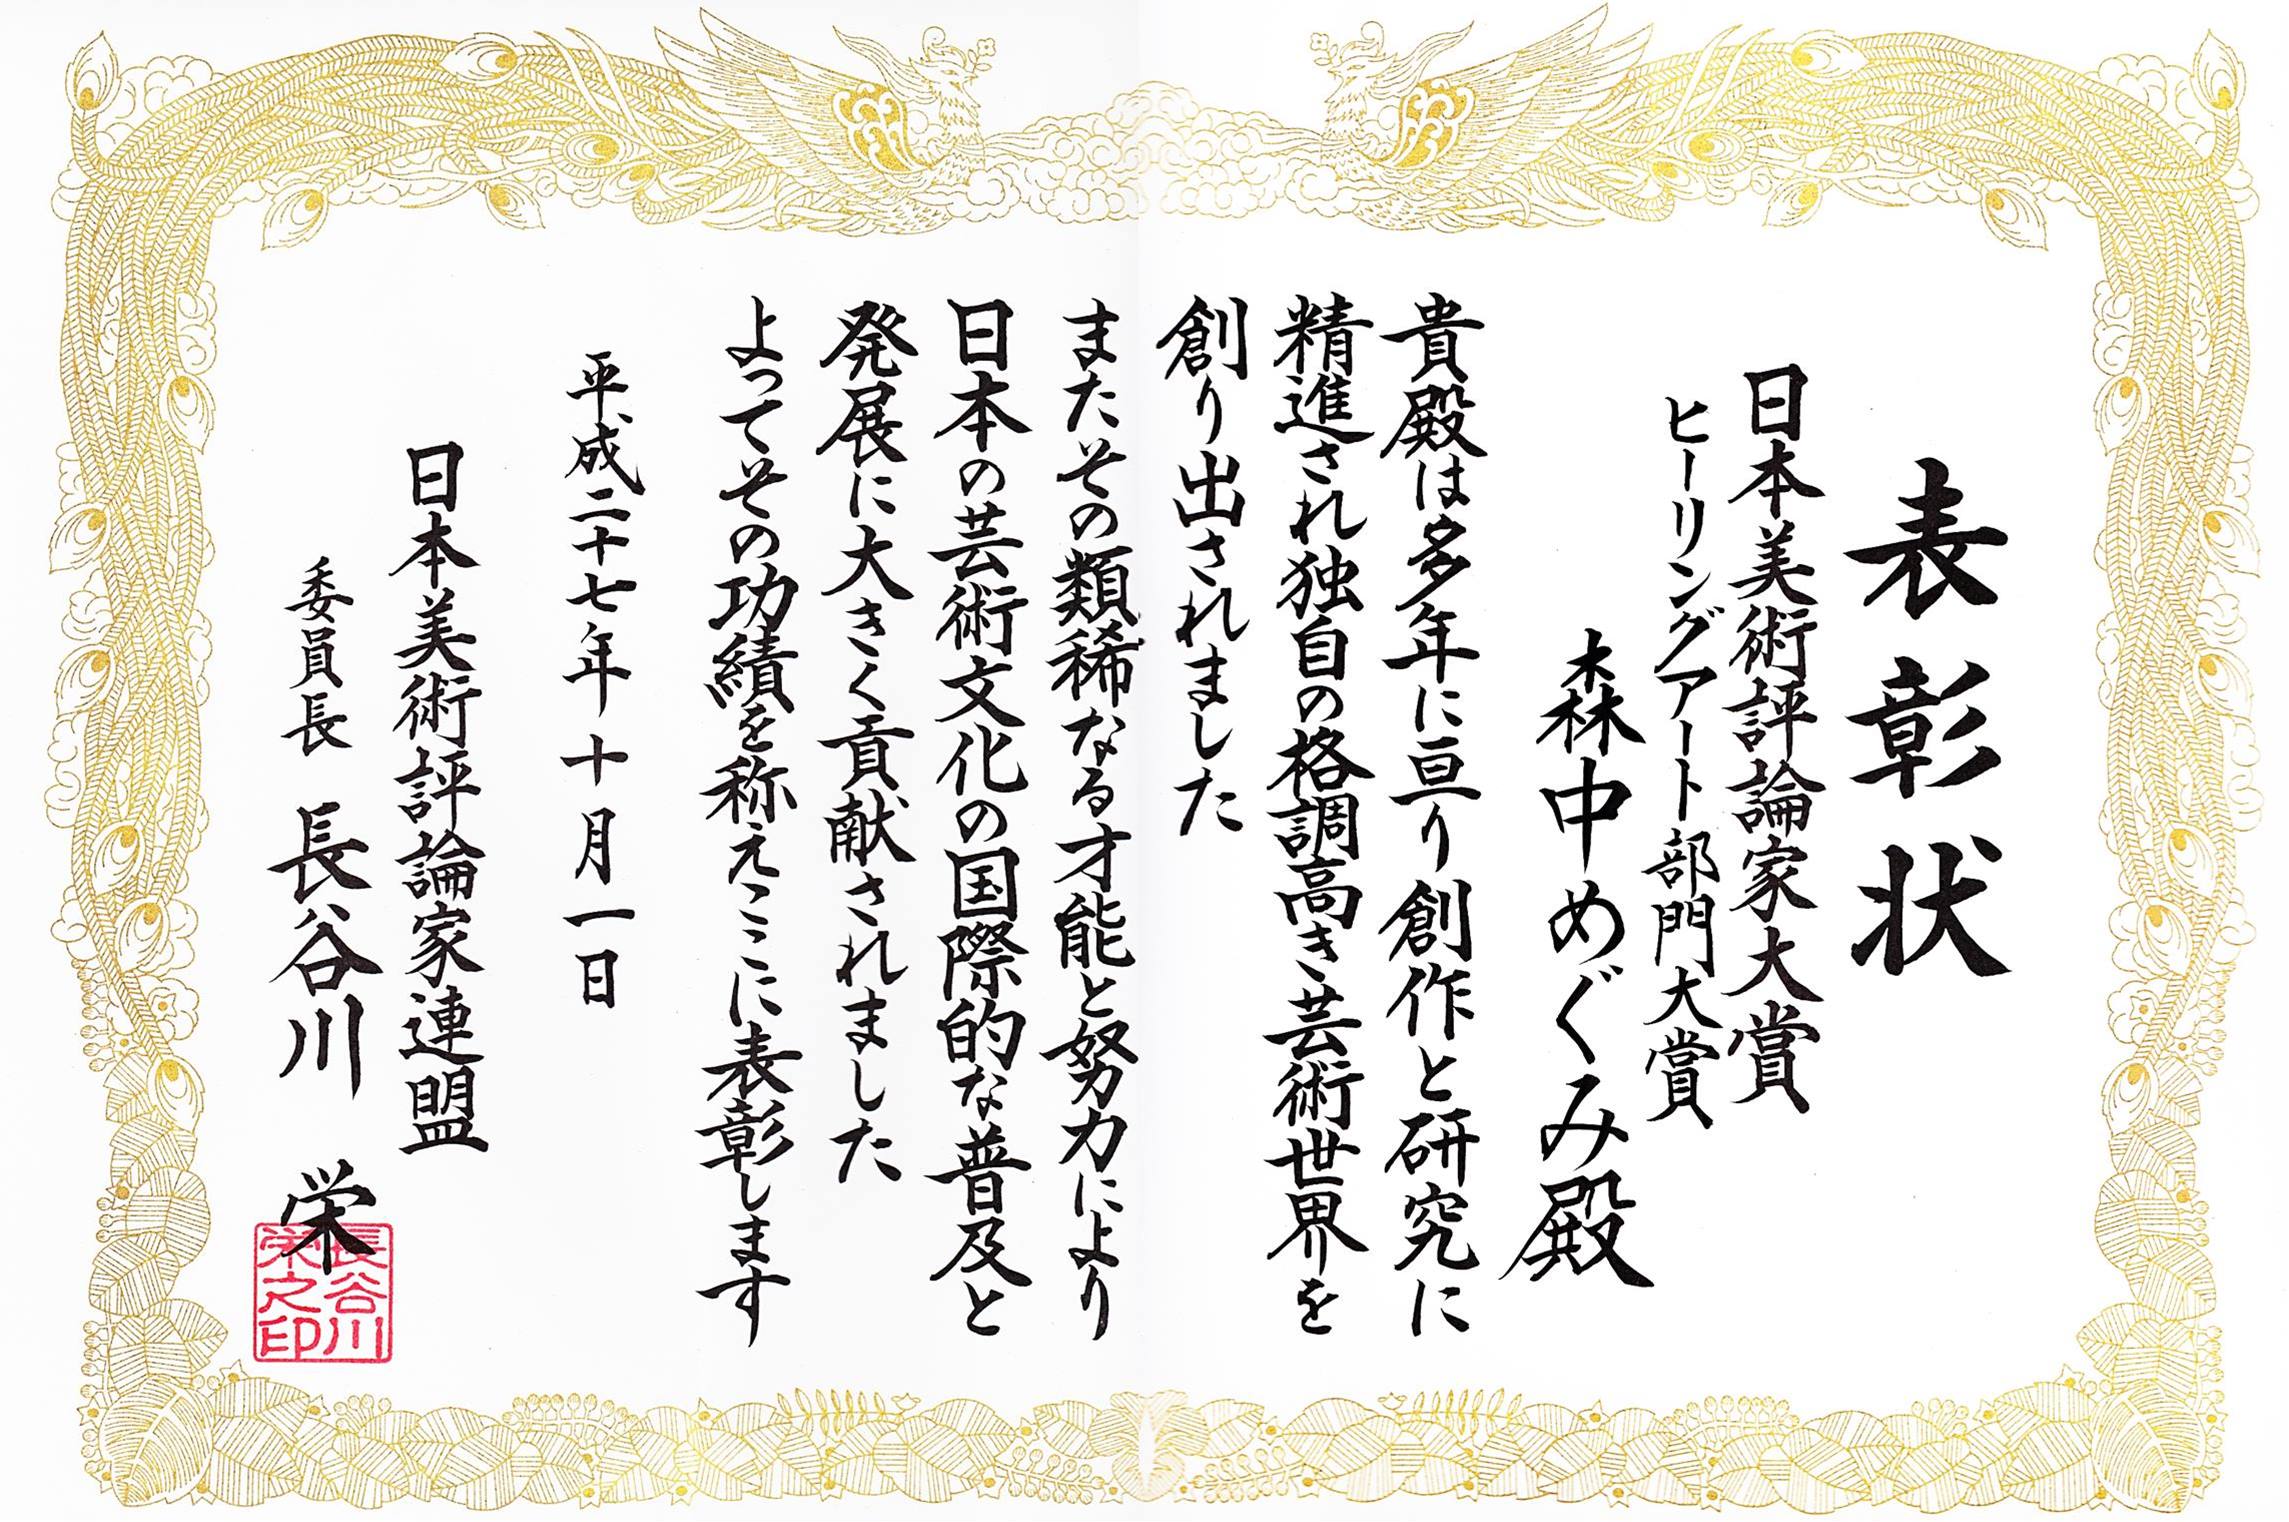 表彰状
日本美術評論家大賞
ヒーリングアート部門大賞
森中めぐみ殿
貴殿は多年に亘り創作と研究に
精進され独自の格調高き芸術世界を
創り出されました
またその類稀なる才能と努力により
日本の芸術文化の国際的な普及と
発展に大きく貢献されました
よってその功績を称えここに表彰します
平成二十七年十月一日
日本美術評論家連盟
委員長 長谷川 栄
長谷川
栄之印